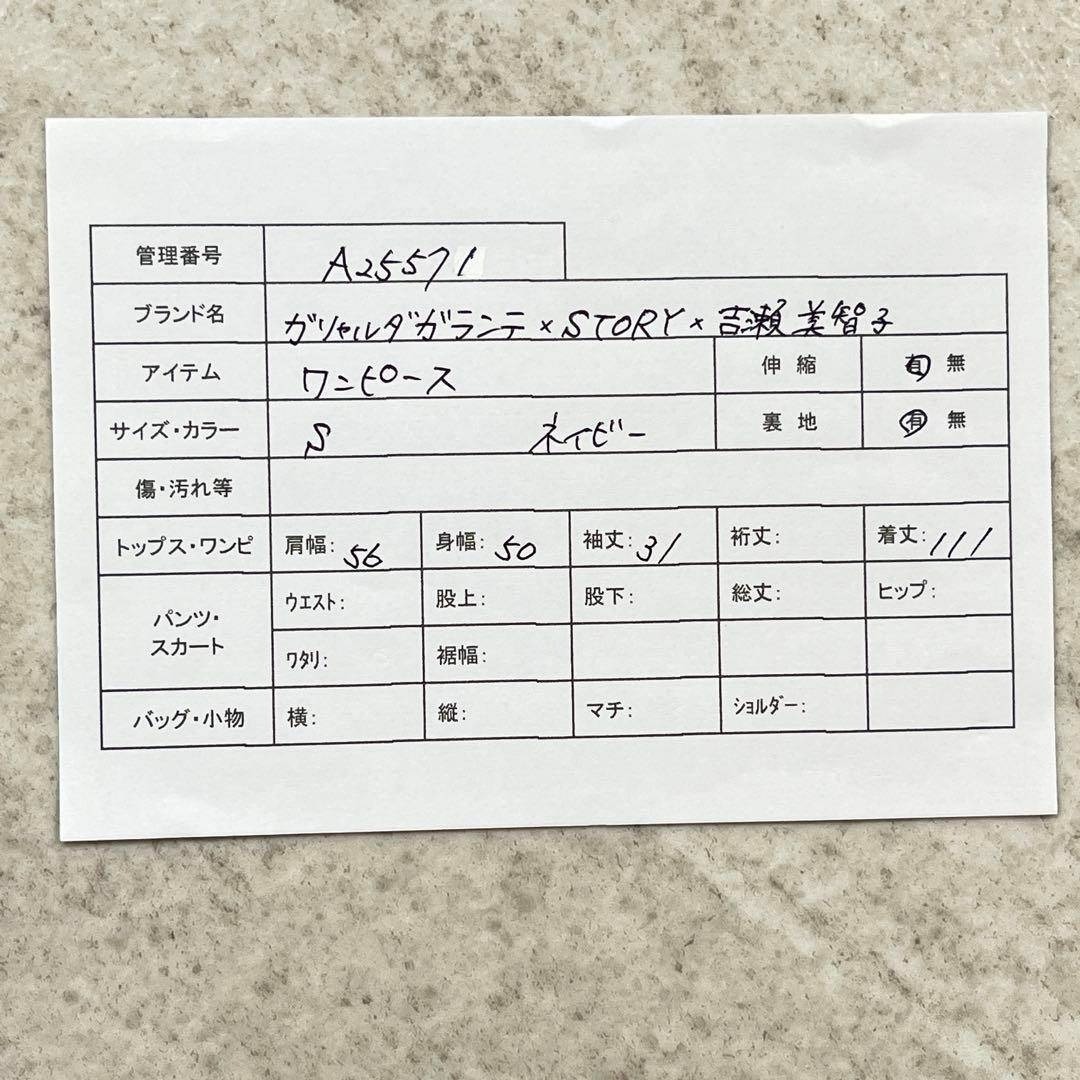 管理番号 A25571
ブランド名 ガリャルダガランテ×STORY×吉瀬美智子
アイテム ワンピース 伸縮 有 無
サイズ・カラー S ネイビー 裏地 有 無
傷・汚れ等
トップス・ワンピ 肩幅: 56 身幅: 50 袖丈: 31 裄丈: 着丈: 111
パンツ・スカート ウエスト: 股上: 股下: 総丈: ヒップ:
ワタリ: 裾幅:
バッグ・小物 横: 縦: マチ: ショルダー: